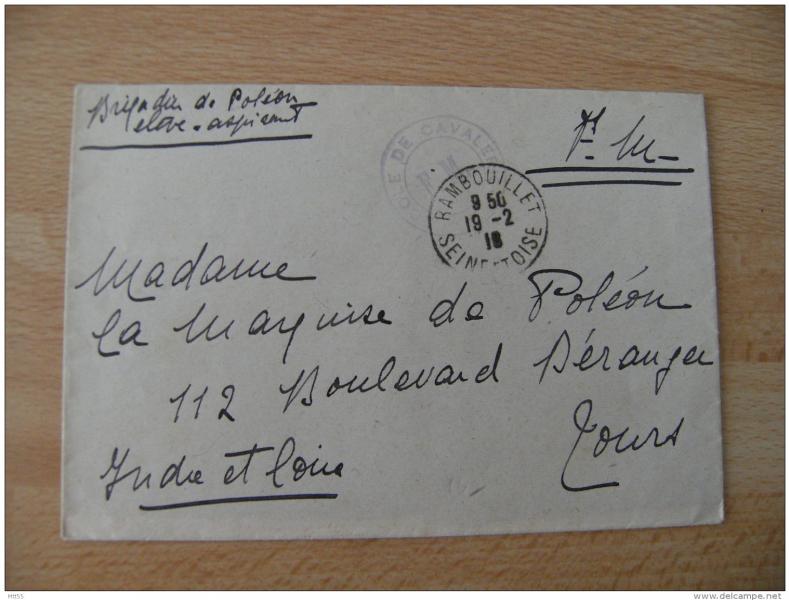 Brigadier de Poléon
élève-aspirant
F. M-
OLE DE CAVALE
RAMBOUILLET
9 50
19 -2
18
SEINE ET OISE
Madame
la Marquise de Poléon
112 Boulevard Béranger
Tours
Indre et Loire
Hit55
www.delcampe.net